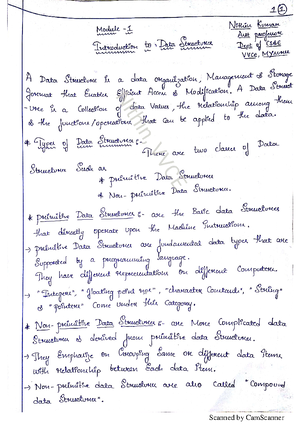 1 (1)
Nithin Kumar
Asst professor
Dept of CS&E
VVCE, Mysuru
Module - 1
Introduction to Data Structures
A Data Structure is a data organization, Management & Storage
format that Enable Efficient Access & Modification. A Data Struct
-ure is a Collection of data Values, the relationship among them
& the functions/operations that can be applied to the data.
* Types of Data Structures :-
There are two classes of Data
Structures Such as
* primitive Data Structures
* Non-primitive Data Structures.
* primitive Data Structures :- are the Basic data Structures
that directly operate upon the Machine Instructions.
→ primitive Data Structures are fundamental data types that are
Supported by a programming language.
They have different representations on different Computers.
→ "Integers", "floating point no's", "character Constants", "String"
& "pointers" Come under this Category.
* Non-primitive Data Structures :- are More Complicated data
Structures & derived from primitive data Structures.
→ They Emphasize on Grouping Same or different data Items
with relationship between Each data Item.
→ Non-primitive data Structures are also called "Compound
data Structures".
Nithin VVCE
Scanned by CamScanner